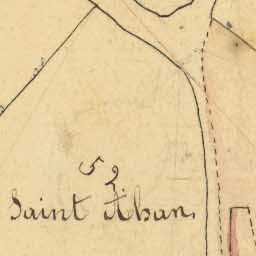 52
Saint Aban.